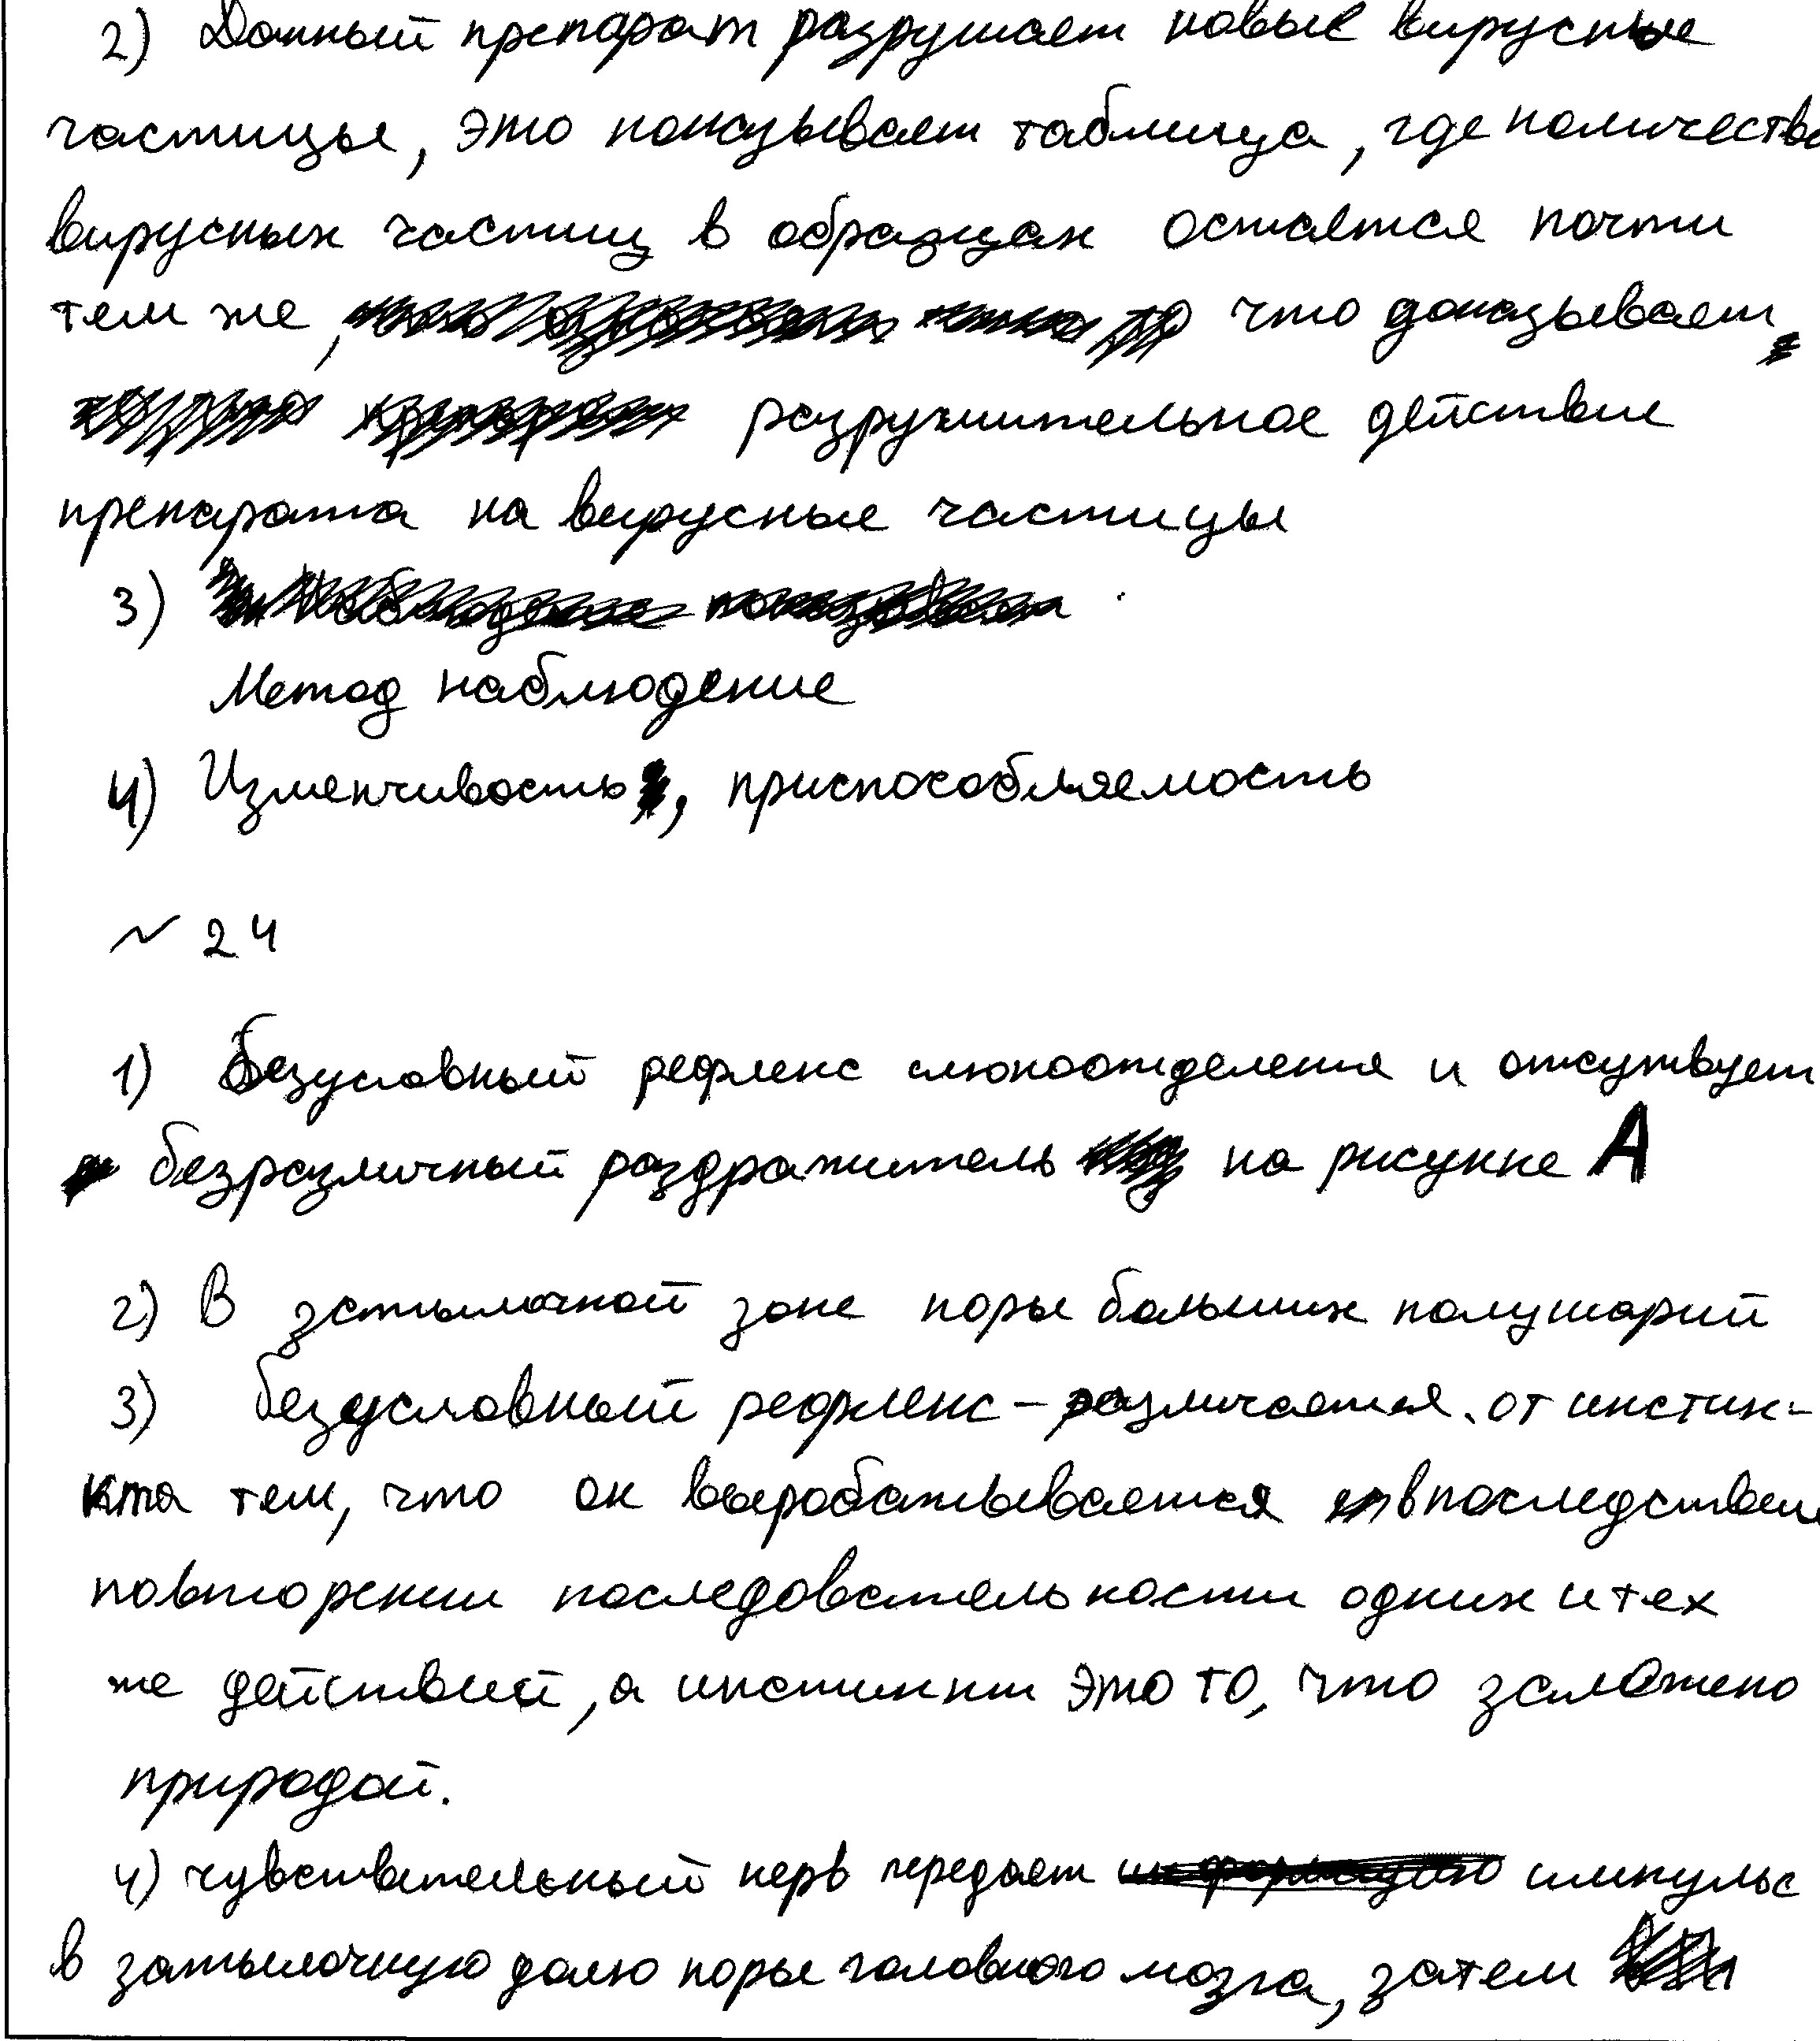 2) Данный препарат разрушает новые вирусные
частицы, это показывает таблица, где количество
вирусных частиц в образцах остаётся почти
тем же, что доказывает
разрушительное действие
препарата на вирусные частицы
3)
Метод наблюдение
4) Изменчивость, приспособляемость
№ 24
1) Безусловный рефлекс слюноотделения и отсутвует
безразличный раздражитель на рисунке А
2) В затылочной зоне коры больших полушарий
3) безусловный рефлекс – различается от инстин-
кта тем, что он вырабатывается впоследствии
повторении последовательности одних и тех
же действий, а инстинкт это то, что заложено
природой.
4) чувствительный нерв передает импульс
в затылочную долю коры головного мозга, затем